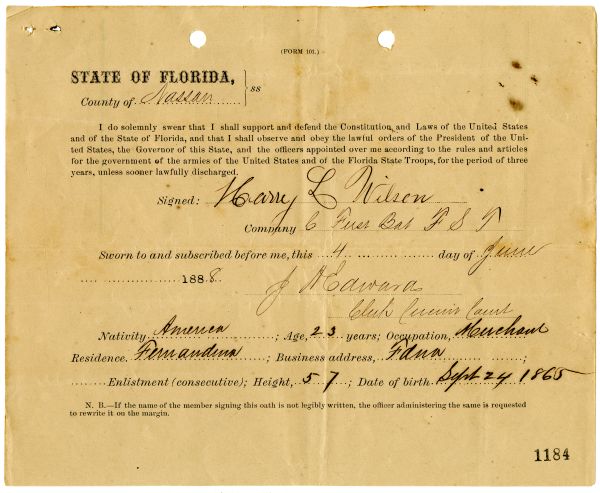 (FORM 101.)
STATE OF FLORIDA, } ss
County of Nassau
I do solemnly swear that I shall support and defend the Constitution and Laws of the United States
and of the State of Florida, and that I shall observe and obey the lawful orders of the President of the Uni-
ted States, the Governor of this State, and the officers appointed over me according to the rules and articles
for the government of the armies of the United States and of the Florida State Troops, for the period of three
years, unless sooner lawfully discharged.
Signed: Harry L Wilson
Company C First Bat F S T
Sworn to and subscribed before me, this 4 day of June
1888. J H Edwards
Clerk Circuit Court
Nativity America ; Age, 23 years; Occupation, Merchant
Residence. Fernandina ; Business address, Fdna ;
Enlistment (consecutive) ; Height, 5 7 ; Date of birth Sept 24 1865
N. B.—If the name of the member signing this oath is not legibly written, the officer administering the same is requested
to rewrite it on the margin.
1184